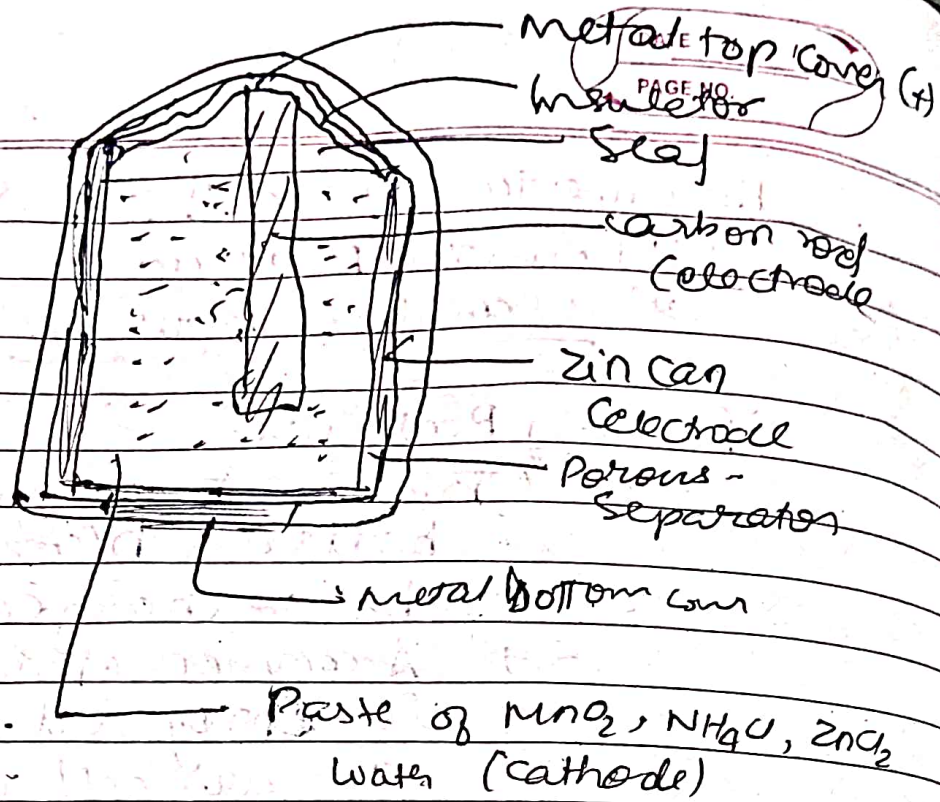 Metal top cover (+)
PAGE NO.
Insulator
Seal
carbon rod
(electrode
zin can
(electrode
Porous-
Separator
Metal bottom
Paste of MnO₂, NH₄Cl, ZnCl₂
Water (cathode)